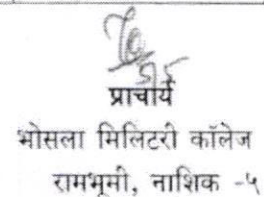 प्राचार्य
भोसला मिलिटरी कॉलेज
रामभूमी, नाशिक -५